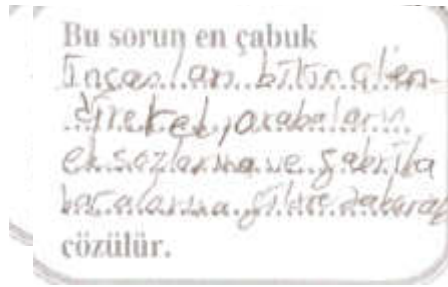 Bu sorun en çabuk
İnsanları bilinçlen-
direrek, arabaların
eksozlarına ve fabrika
bacalarına filtre takarak
çözülür.